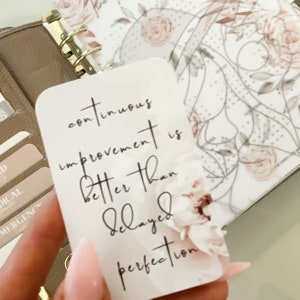 continuous
improvement is
better than
delayed
perfection